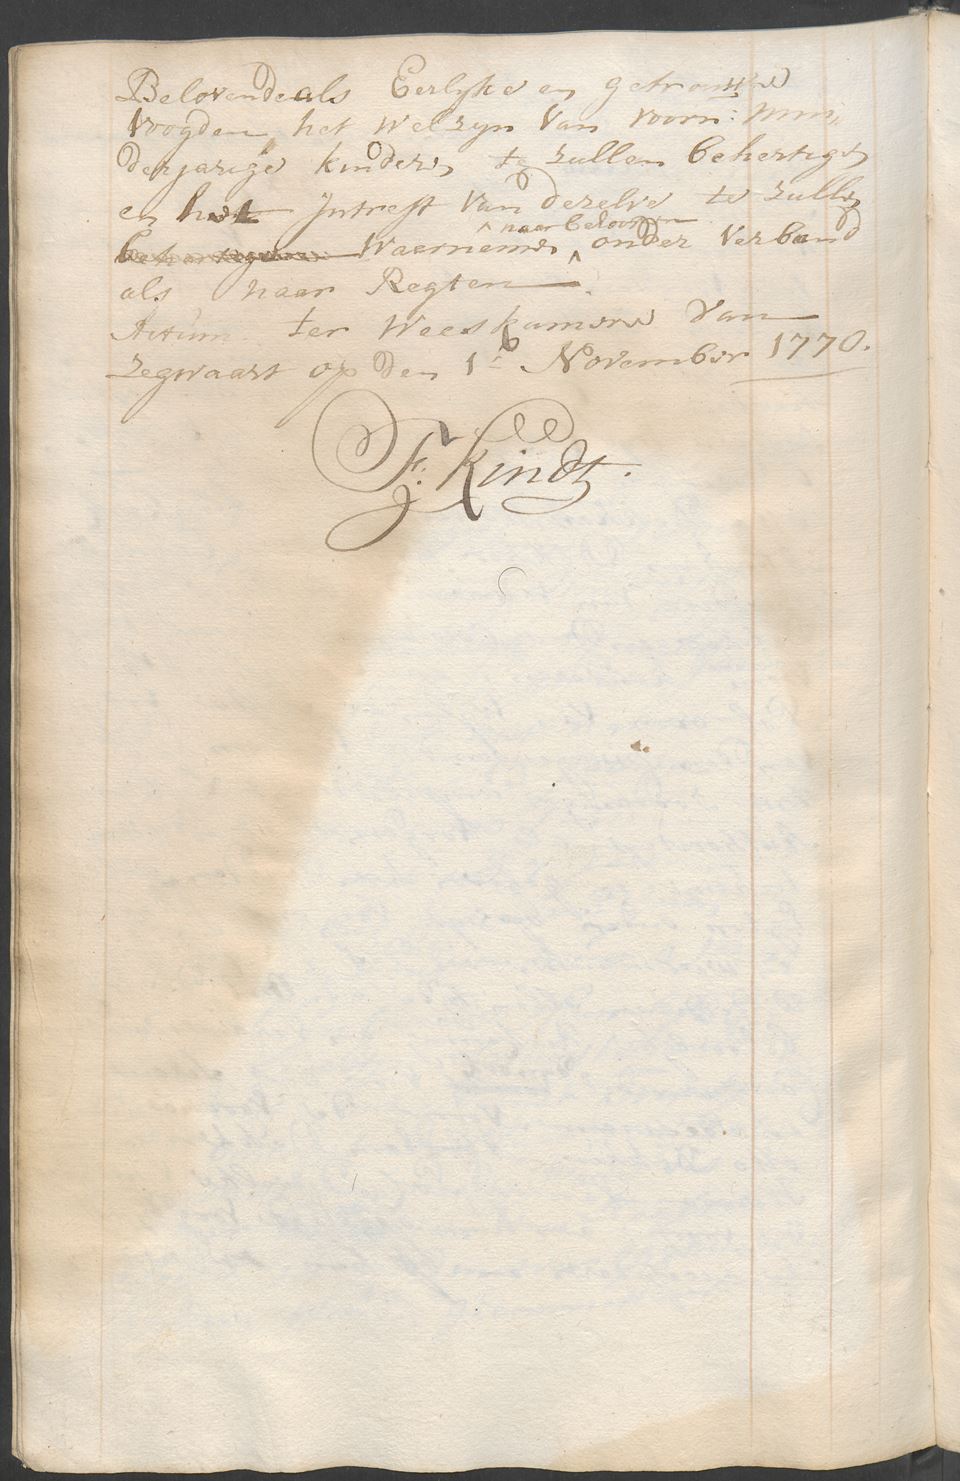 Belovende als Eerlyke en getrouwe
Voogden het welzyn van voorn: min,
derjarige kinders te zullen behertigen
en het Intrest van dezelve te zullen
naar behooren
Waarnemen onder verband
als naar Regten
Actum ter Weeskamere van
Zegwaart op den 1e November 1770.
F: Kindt.